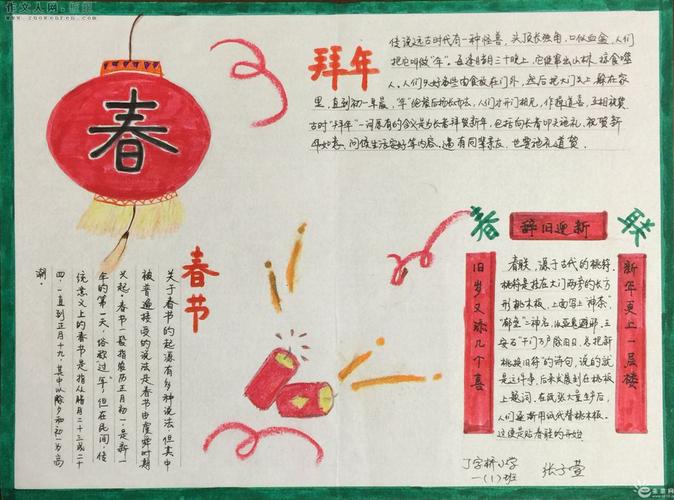 作文人网
www.zuowenren.com
春
拜年
传说远古时代有一种怪兽，头顶长独角，口似血盆，人们
把它叫做“年”。每逢腊月三十晚上，它便窜出山林，掠食噬
人。人们只好备些肉食放在门外，然后把大门关上，躲在家
里，直到初一早晨，“年”饱餐后扬长而去，人们才开门相见，作揖道喜，互相祝贺
古时“拜年”一词原有的含义是为长者拜贺新年，包括向长者叩头施礼、祝贺新
年如意、问候生活安好等内容。遇有同辈亲友，也要施礼道贺。
春节
关于春节的起源有多种说法，但其中
被普遍接受的说法是春节由虞舜时期
兴起。春节一般指农历正月初一，是新一
年的第一天，俗称过“年”，但在民间，传
统意义上的春节是指从腊月二十三或二十
四，一直到正月十九，其中以除夕和初一为高
潮。
春联
辞旧迎新
旧岁又添几个喜
新年更上一层楼
春联，源于古代的桃符。
桃符是挂在大门两旁的长方
形桃木板，上面写上“神荼”
“郁垒”二神名，
安石“千门万户曈曈日，总把新
桃换旧符”的诗句，说的就
是这件事，后来发展到在桃板
上题词。在纸张大量生产后，
人们逐渐用纸代替桃木板。
这便是贴春联的开始
丁字桥小学
一（1）班
张子萱